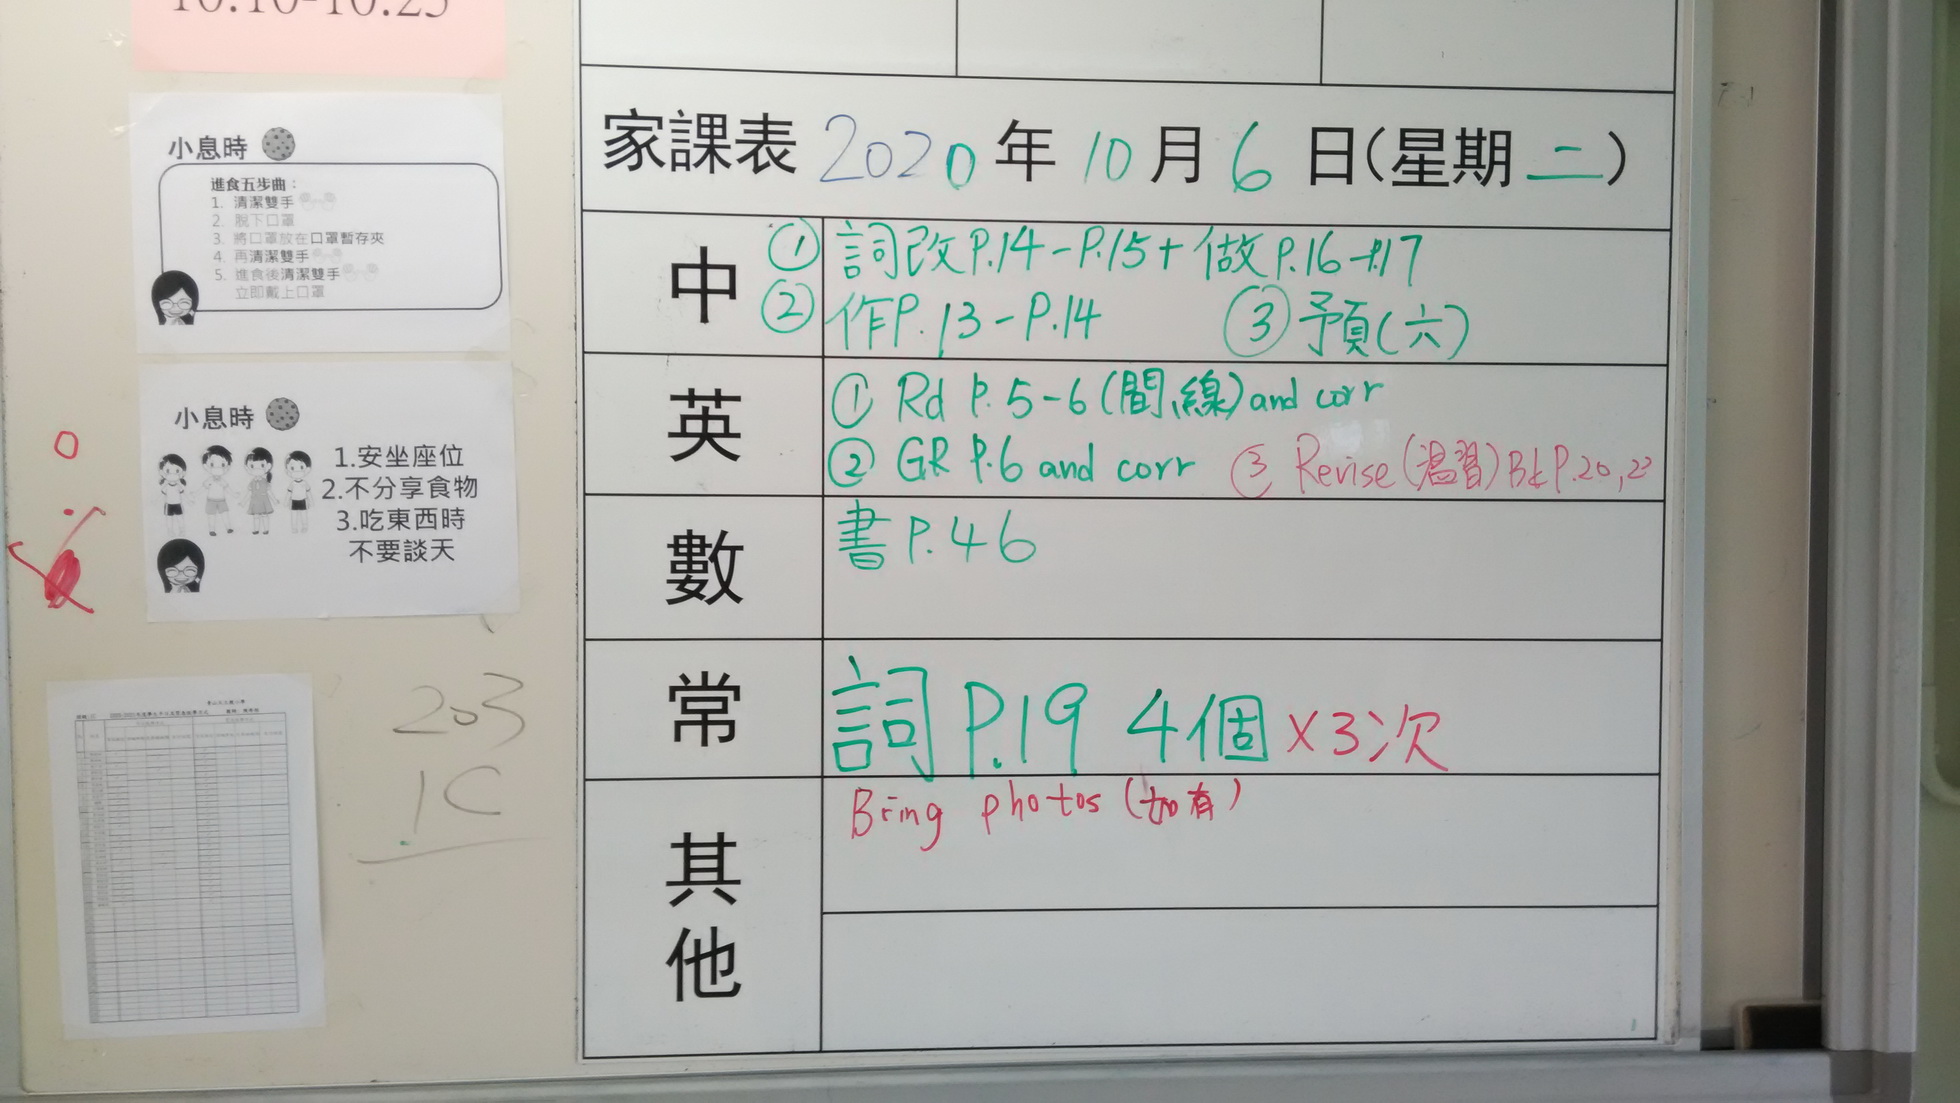 10:10-10:25
小息時
進食五步曲：
1. 清潔雙手
2. 脫下口罩
3. 將口罩放在口罩暫存夾
4. 再清潔雙手
5. 進食後清潔雙手
立即戴上口罩
小息時
1.安坐座位
2.不分享食物
3.吃東西時
不要談天
203
1C
家課表 2020 年 10 月 6 日(星期 二)
中 ① 詞改P.14-P.15+做P.16-P.17
② 作P.13-P.14 ③ 預(六)
英 ① Rd P.5-6(間線) and corr
② GR P.6 and corr ③ Revise(溫習) Bk P.20,
數 書P.46
常 詞 P.19 4個 x3次
其他 Bring photos (如有)